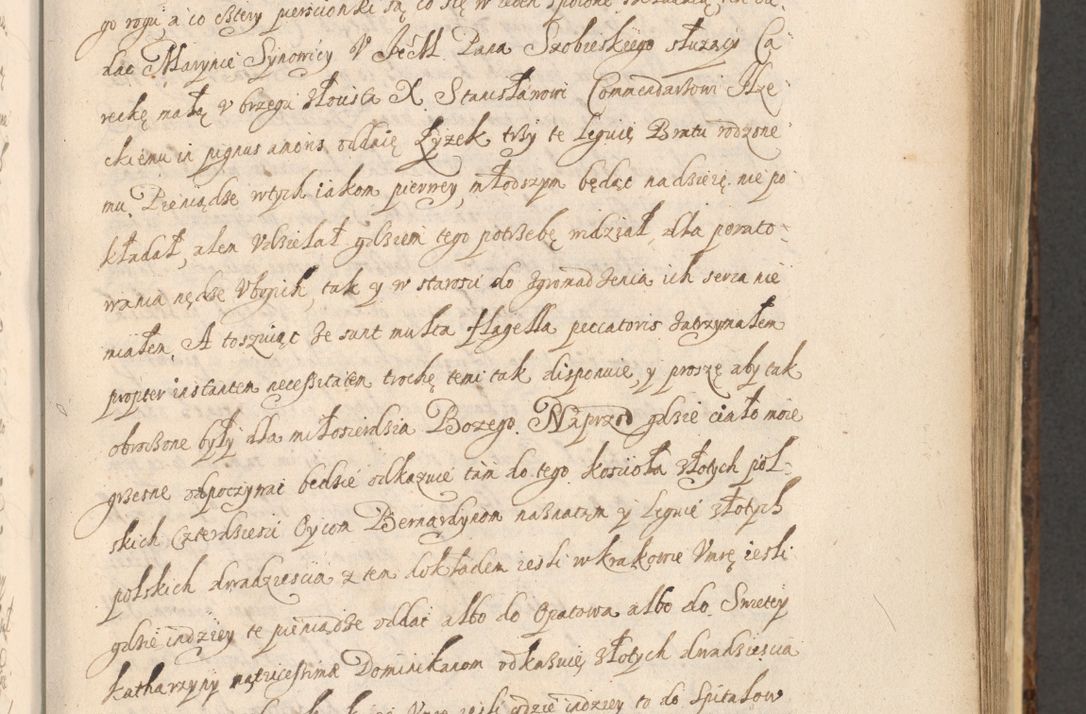 go rogu, a co cztery pierscionki są, co się w
dac Marynie Synowicy V JeMći Pana Szobieskiego służący Ca
reckę małą v brzegu złoista X. Stanisławowi Commendartowi Ilze
ckiemu in pignus amoris oddaię Łyzek trzy te leguię Bratu rodzone
mu. Pieniądze wtych iakom pierwey, młodszym będąc nadzieię nie po
kładał, alem Vdzielał gdziem tego potrzebę widział, dla porato-
wania nędze Vbogich, tak y w starosci do zgromadzenia ich serca nie
miałem. A toszuiąc że sunt multa flagella peccatoris zatrzymałem
propter instantem necessitatem trochę temi tak disponuię, y proszę aby tak
obrocone były dla miłosierdzia Bozego. Naprzod gdzie ciało moie
grzesne odpoczywac będzie odkazuię tam do tego koscioła złotych pol-
skich czterdziesci Oycom Bernardynom naznaczam y leguię złotych
polskich dwadziescia z tem dokładem iesli w krakowie Vmrę iesli
gdzie indziey te pieniądze oddac albo do Opatowa albo do Swietey
Katharzyny na tricessimæ Dominikanom odkazuię złotych dwadziescia
Vmrę iesli gdzie indziey to do Spitalow